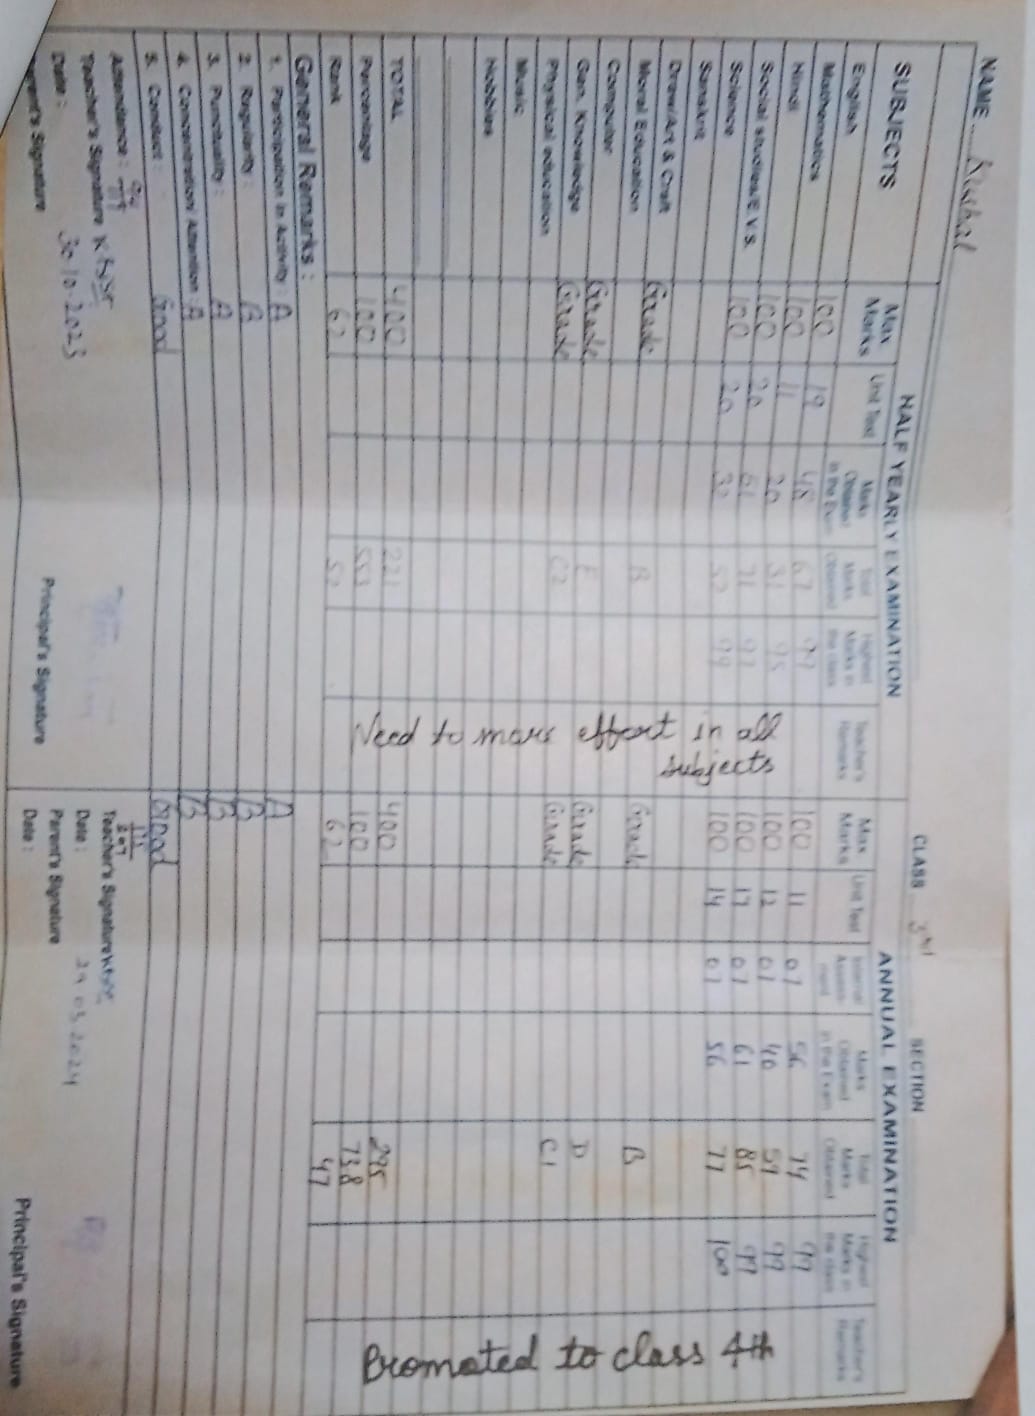 NAME Kushal CLASS 3rd SECTION
SUBJECTS HALF YEARLY EXAMINATION ANNUAL EXAMINATION
Max Marks Unit Test Marks Obtained in the Exam Total Marks Obtained Highest Marks in the class Teacher's Remarks Max Marks Unit Test Internal Assessment Marks Obtained in the Exam Total Marks Obtained Highest Marks in the class Teacher's Remarks
English 100 19 48 67 99 100 11 07 56 74 99
Mathematics 100 11 20 31 95 100 12 07 40 59 99
Hindi 100 20 51 71 97 100 17 07 61 85 99
Social studies/E.V.S. 100 20 32 52 99 100 14 07 56 77 100
Science
Sanskrit
Draw/Art & Craft
Moral Education Grade B Grade B
Computer
Gen. Knowledge Grade E Grade D
Physical education Grade C2 Grade C1
Music
Hobbies
Need to more effort in all subjects
Promoted to class 4th
TOTAL 400 221 400 295
Percentage 100 55.3 100 73.8
Rank 62 52 62 47
General Remarks :
1. Participation in Activity : A A
2. Regularity : B B
3. Punctuality : A B
4. Concentration/ Attention : A B
5. Conduct : Good Good
Attendance :
Teacher's Signature Teacher's Signature
Date : 30.10.2023 Date : 29.03.2024
Parent's Signature Principal's Signature Parent's Signature Principal's Signature
Date :